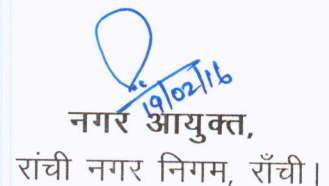 19/02/16
नगर आयुक्त,
रांची नगर निगम, राँची।